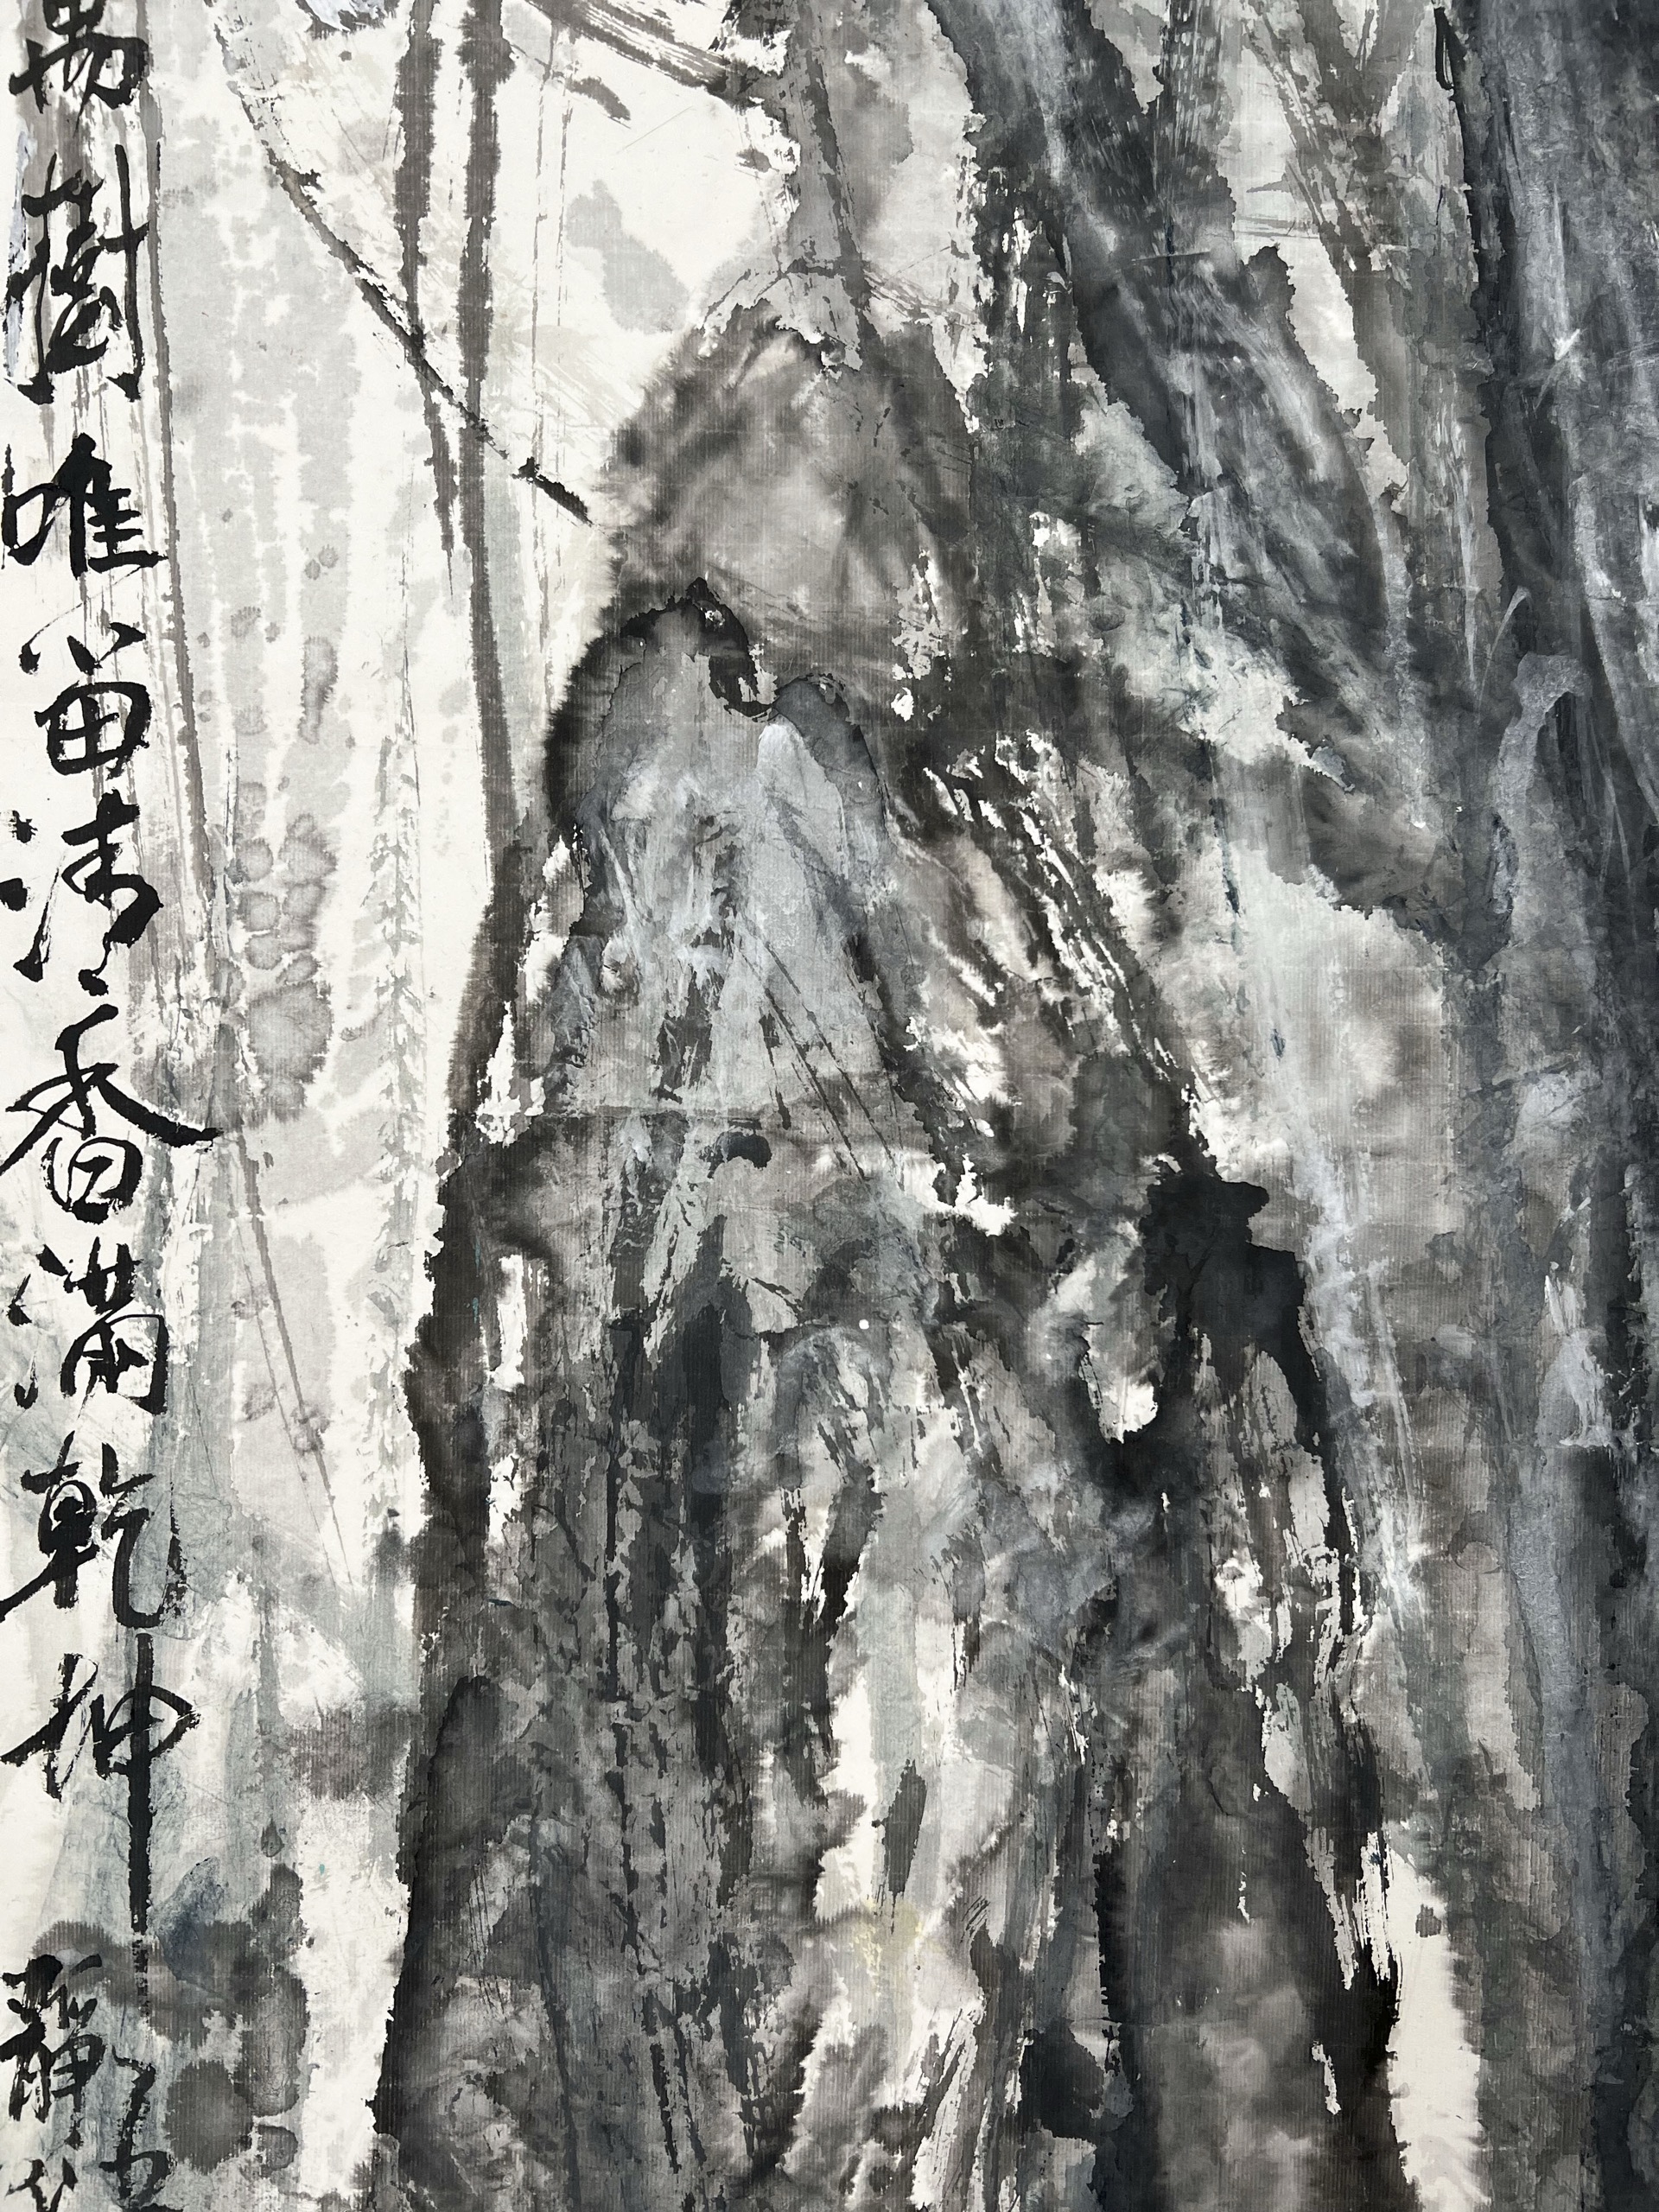 樹唯留清香滿乾坤 靜